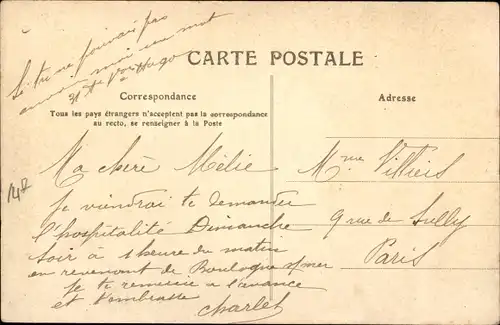 Si tu ne pouvais pas
moi un mot
Hugo
CARTE POSTALE
Correspondance
Tous les pays étrangers n'acceptent pas la correspondance
au recto, se renseigner à la Poste
Adresse
Ma chère Mélie
Je viendrai te demander
l'hospitalité Dimanche
soir à 1 heure du matin
en revenant de Boulogne s/mer
Je te remercie à l'avance
et t'embrasse
Charlet
Mme Villiers
9 rue de Sully
Paris